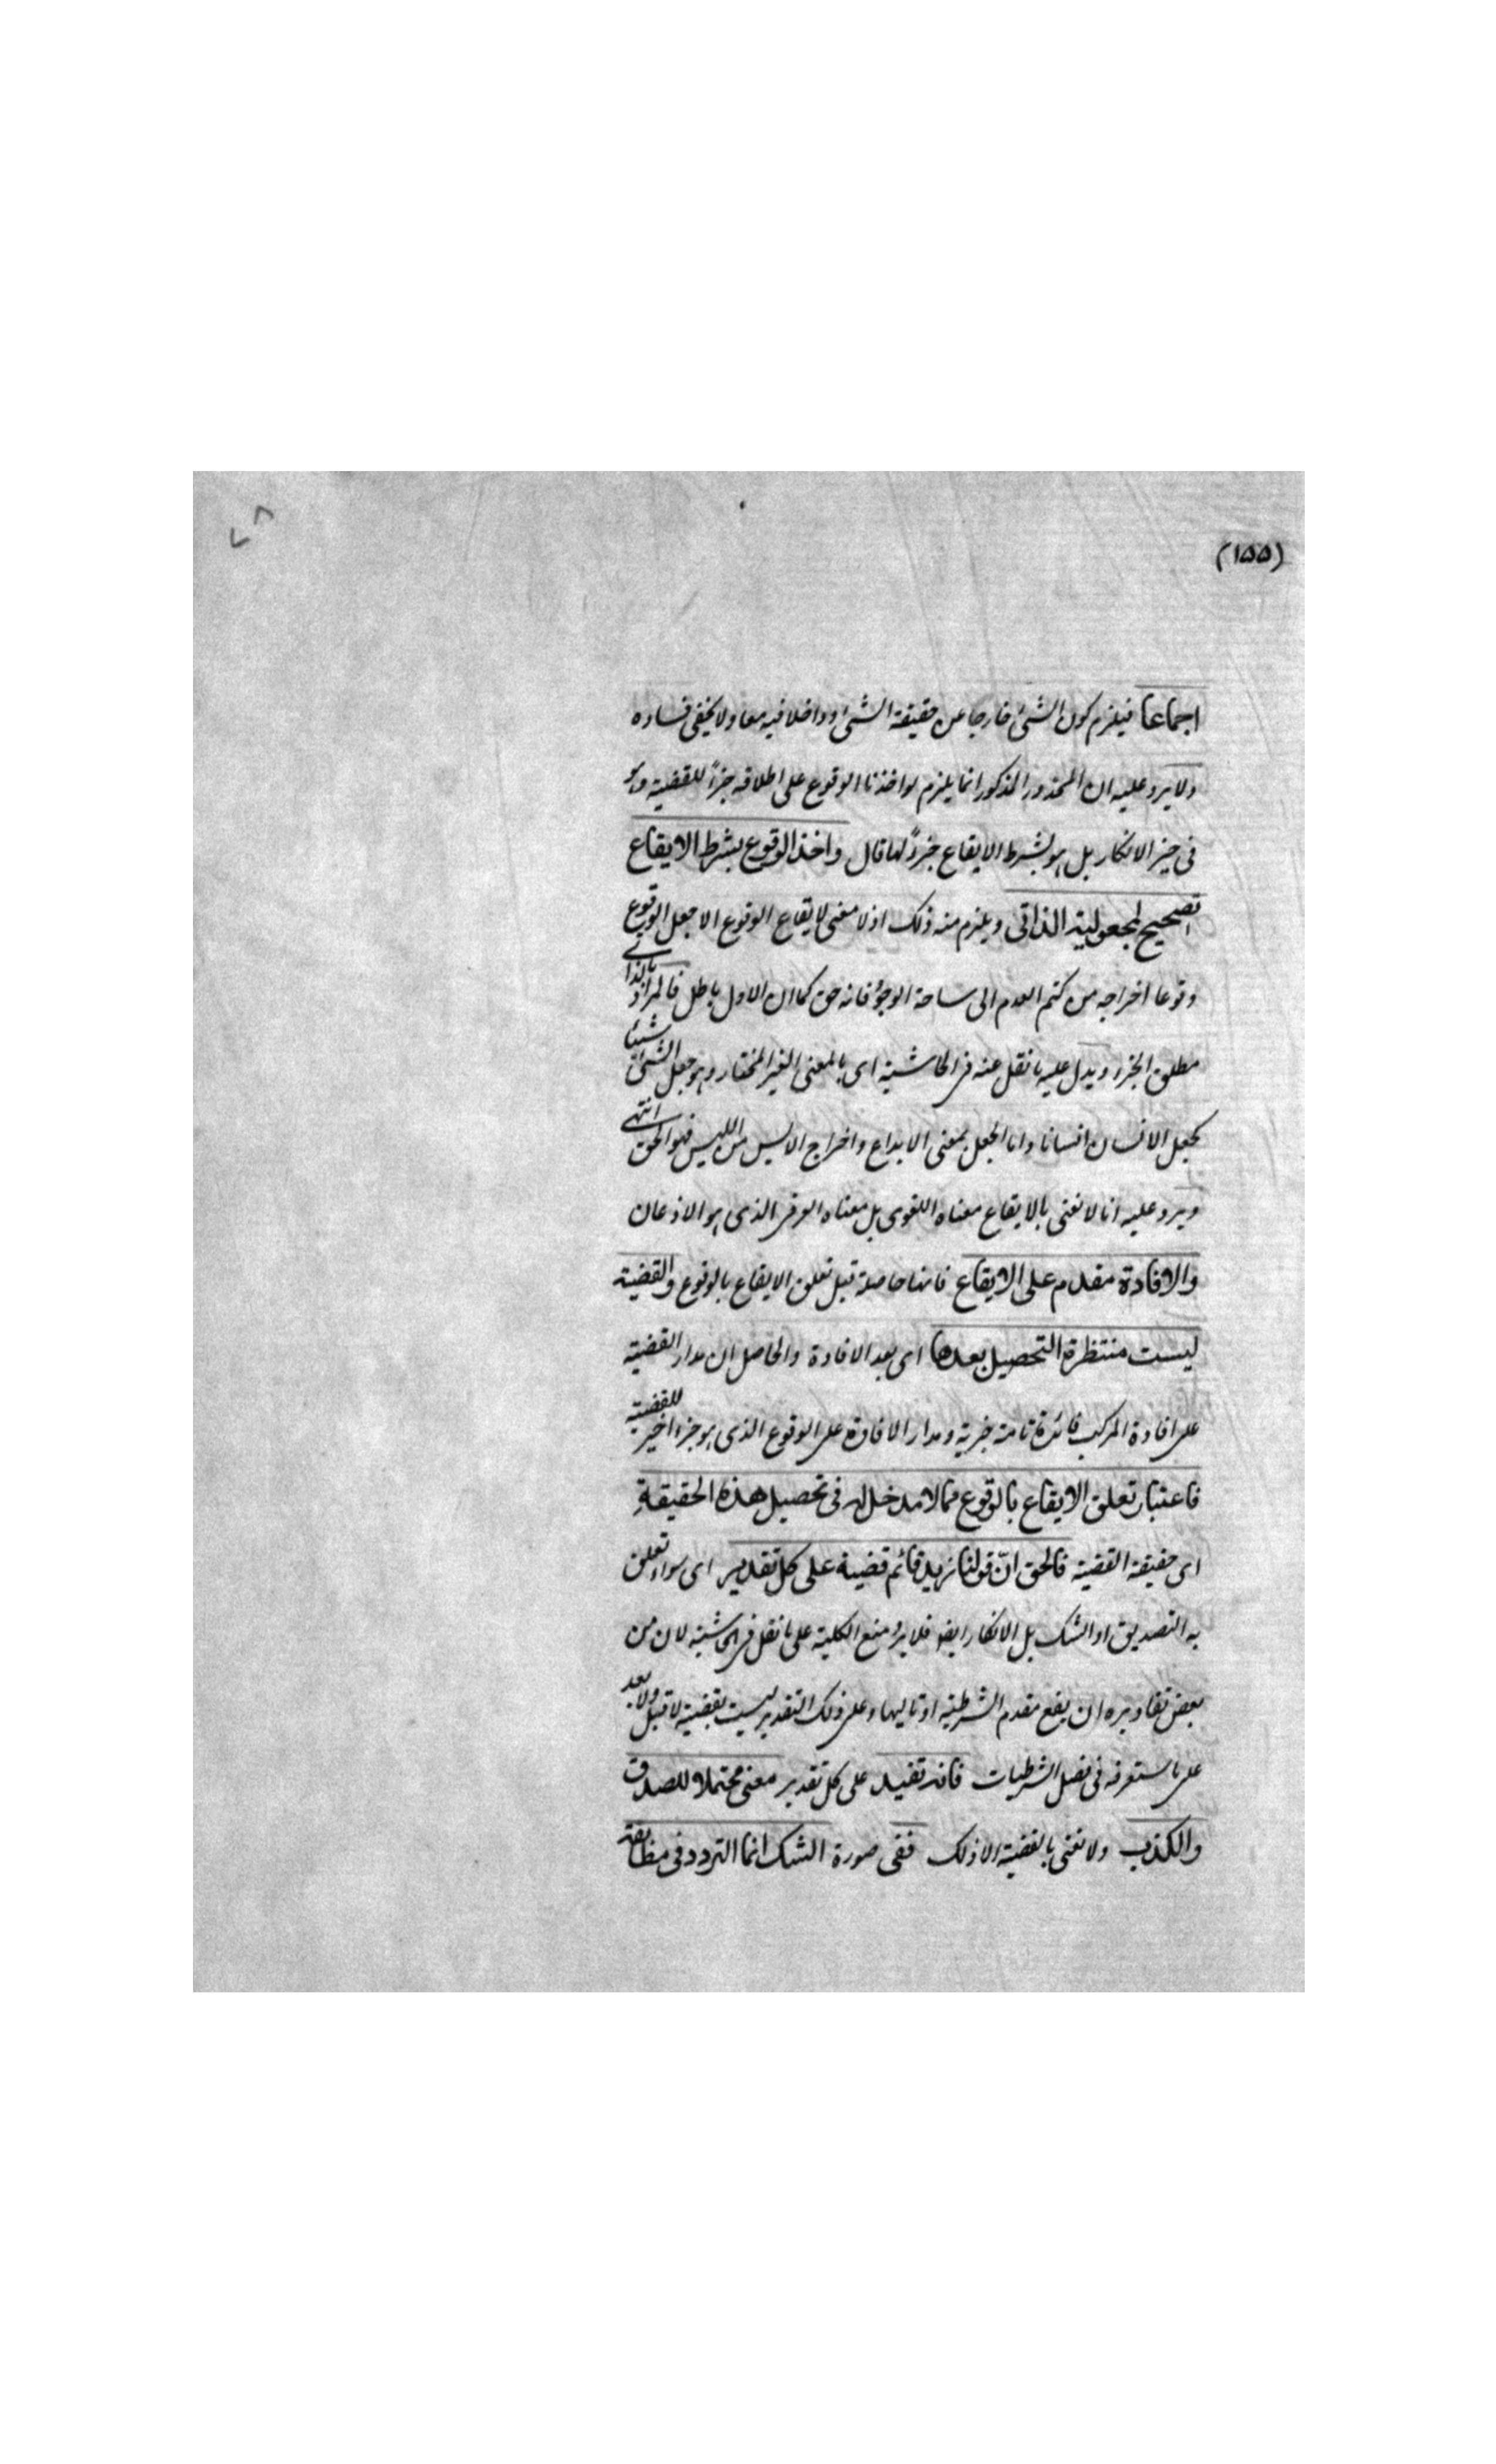 ٧٨
(١٥٥)
اجماعا فيلزم كون الشئ خارجا عن حقيقة الشئ وداخلا فيه معا ولا يخفى فساده
ولا يرد عليه ان المحذور المذكور انما يلزم لو اخذنا الوقوع على اطلاقه جزءً للقضية وهو
فى حيز الانكار بل هو بشرط الايقاع جزءً لها قال واخذ الوقوع بشرط الايقاع
تصحيح لمجعولية الذاتى ويلزم منه ذلك اذ لا معنى لايقاع الوقوع الا جعل الوقوع
وقوعا اخراجه من كتم العدم الى ساحة الوجود فانه حق كما ان الاول باطل فالمراد بالذاتى
مطلق الجزء ويدل عليه ما نقل عنه فى الحاشية اى بالمعنى الغير المختار وهو جعل الشئ شيئا
كجعل الانسان انسانا واما الجعل بمعنى الابداع واخراج الايس من الليس فهو الحق انتهى
ويرد عليه انا لا نعنى بالايقاع معناه اللغوى بل معناه العرفى الذى هو الاذعان
والافادة مقدم على الايقاع فانها حاصلة قبل تعلق الايقاع بالوقوع والقضية
ليست منتظرة التحصيل بعدها اى بعد الافادة والحاصل ان مدار القضية
على افادة المركب فائدة تامة خبرية ومدار الافادة على الوقوع الذى هو جزء اخير للقضية
فاعتبار تعلق الايقاع بالوقوع مما لا مدخل له فى تحصيل هذه الحقيقة
اى حقيقة القضية فالحق انّ قولنا زيد قائم قضية على كل تقدير اى سواء تعلق
به التصديق او الشك بل الانكار ايضو فلا يرد منع الكلية على ما نقل فى الحاشية لان من
بعض تقاديره ان يقع مقدم الشرطية او تاليها وعلى ذلك التقدير ليست بقضية لا قبل ولا بعد
على ما ستعرفه فى فصل الشرطيات فانه تفيد على كل تقدير معنى محتملا للصدق
والكذب ولا نعنى بالقضية الا ذلك ففى صورة الشك انما التردد فى مطابقة